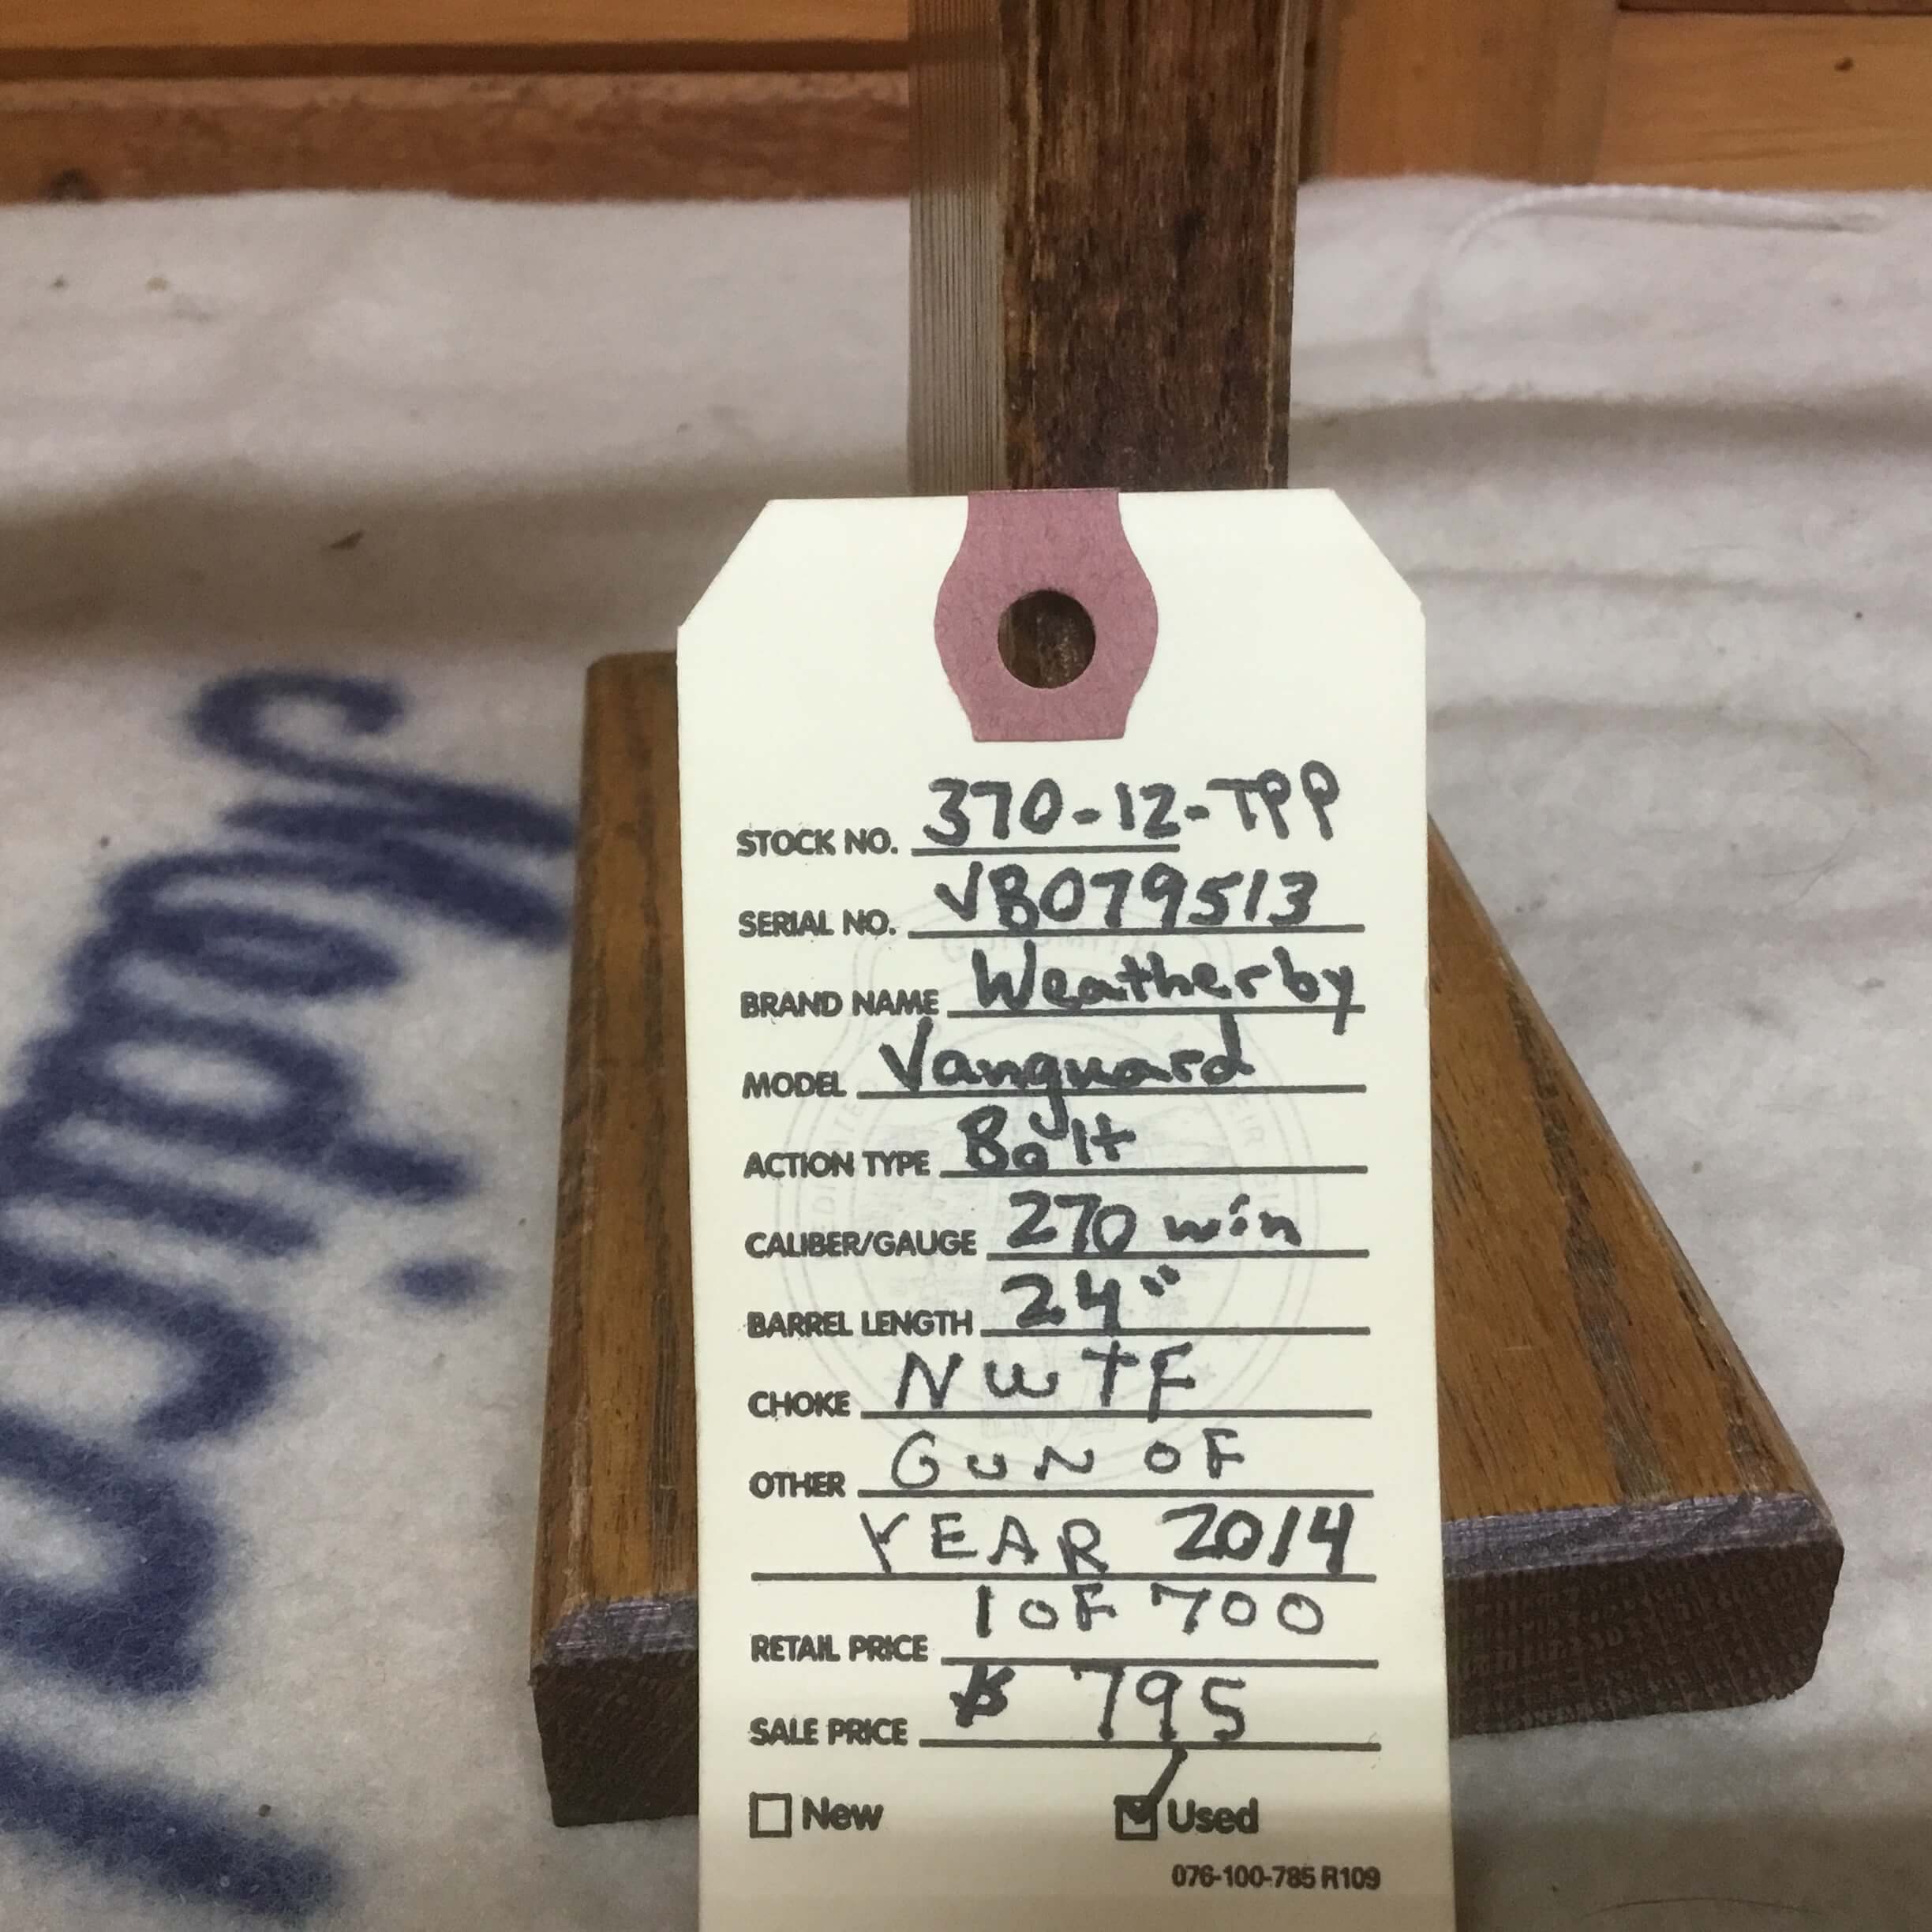 STOCK NO. 370-12-TPP
SERIAL NO. VB079513
BRAND NAME Weatherby
MODEL Vanguard
ACTION TYPE Bolt
CALIBER/GAUGE 270 win
BARREL LENGTH 24"
CHOKE NWTF
OTHER GUN OF
YEAR 2014
RETAIL PRICE 1 OF 700
SALE PRICE $ 795
New Used
076-100-785 R109